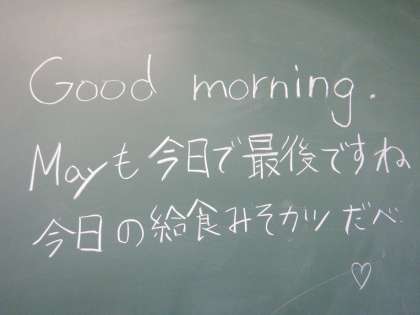 Good morning.
Mayも今日で最後ですね
今日の給食みそカツだべ
♡